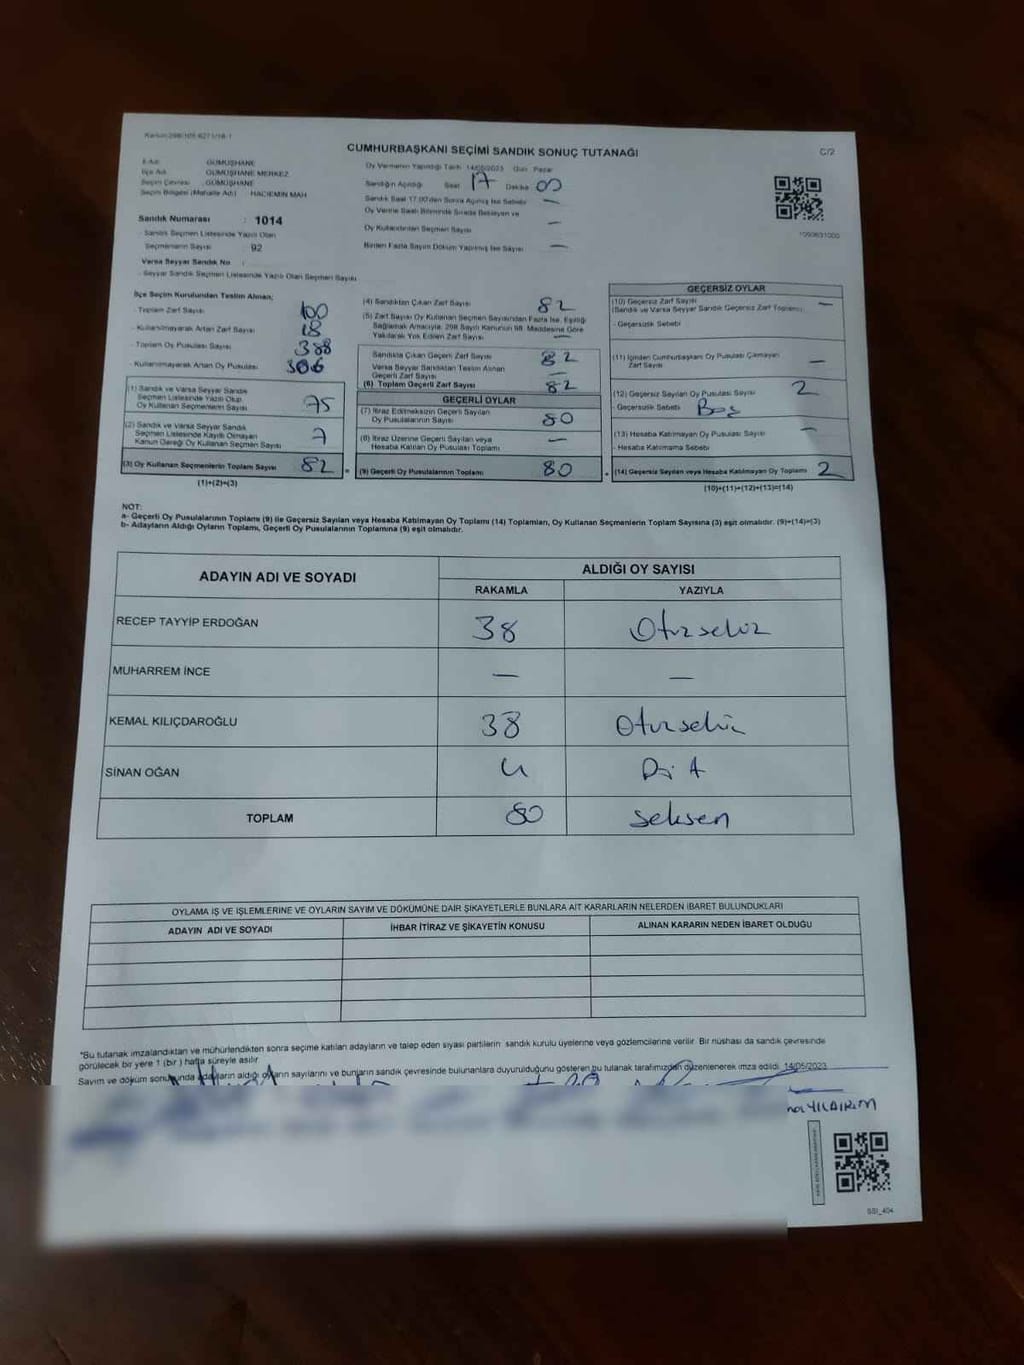 Kanun:298/105 6271/18-1
CUMHURBAŞKANI SEÇİMİ SANDIK SONUÇ TUTANAĞI
C/2
İl Adı : GÜMÜŞHANE
İlçe Adı : GÜMÜŞHANE MERKEZ
Seçim Çevresi : GÜMÜŞHANE
Seçim Bölgesi (Mahalle Adı) : HACIEMİN MAH
Sandık Numarası : 1014
- Sandık Seçmen Listesinde Yazılı Olan
Seçmenlerin Sayısı : 92
Varsa Seyyar Sandık No :
- Seyyar Sandık Seçmen Listesinde Yazılı Olan Seçmen Sayısı
Oy Vermenin Yapıldığı Tarih 14/05/2023 Gün Pazar
Sandığın Açıldığı Saat 17 Dakika 00
Sandık Saat 17.00'den Sonra Açılmış İse Sebebi —
Oy Verme Saati Bitiminde Sırada Bekleyen ve
Oy Kullandırılan Seçmen Sayısı —
Birden Fazla Sayım Döküm Yapılmış İse Sayısı —
İlçe Seçim Kurulundan Teslim Alınan;
- Toplam Zarf Sayısı 100
- Kullanılmayarak Artan Zarf Sayısı 18
- Toplam Oy Pusulası Sayısı 388
- Kullanılmayarak Artan Oy Pusulası 306
(1) Sandık ve Varsa Seyyar Sandık
Seçmen Listesinde Yazılı Olup
Oy Kullanan Seçmenlerin Sayısı 75
(2) Sandık ve Varsa Seyyar Sandık
Seçmen Listesinde Kayıtlı Olmayan
Kanun Gereği Oy Kullanan Seçmen Sayısı 7
(3) Oy Kullanan Seçmenlerin Toplam Sayısı 82
(1)+(2)=(3)
(4) Sandıktan Çıkan Zarf Sayısı 82
(5) Zarf Sayısı Oy Kullanan Seçmen Sayısından Fazla İse, Eşitliği
Sağlamak Amacıyla, 298 Sayılı Kanunun 98. Maddesine Göre
Yakılarak Yok Edilen Zarf Sayısı —
Sandıkta Çıkan Geçerli Zarf Sayısı 82
Varsa Seyyar Sandıktan Teslim Alınan
Geçerli Zarf Sayısı —
(6) Toplam Geçerli Zarf Sayısı 82
GEÇERLİ OYLAR
(7) İtiraz Edilmeksizin Geçerli Sayılan
Oy Pusulalarının Sayısı 80
(8) İtiraz Üzerine Geçerli Sayılan veya
Hesaba Katılan Oy Pusulaları Toplamı —
(9) Geçerli Oy Pusulalarının Toplamı 80
GEÇERSİZ OYLAR
(10) Geçersiz Zarf Sayısı —
(Sandık ve Varsa Seyyar Sandık Geçersiz Zarf Toplamı)
- Geçersizlik Sebebi
(11) İçinden Cumhurbaşkanı Oy Pusulası Çıkmayan
Zarf Sayısı —
(12) Geçersiz Sayılan Oy Pusulası Sayısı 2
- Geçersizlik Sebebi Boş
(13) Hesaba Katılmayan Oy Pusulası Sayısı —
- Hesaba Katılmama Sebebi
(14) Geçersiz Sayılan veya Hesaba Katılmayan Oy Toplamı 2
(10)+(11)+(12)+(13)=(14)
NOT:
a- Geçerli Oy Pusulalarının Toplamı (9) ile Geçersiz Sayılan veya Hesaba Katılmayan Oy Toplamı (14) Toplamları, Oy Kullanan Seçmenlerin Toplam Sayısına (3) eşit olmalıdır. (9)+(14)=(3)
b- Adayların Aldığı Oyların Toplamı, Geçerli Oy Pusulalarının Toplamına (9) eşit olmalıdır.
ADAYIN ADI VE SOYADI ALDIĞI OY SAYISI
RAKAMLA YAZIYLA
RECEP TAYYİP ERDOĞAN 38 Otuzsekiz
MUHARREM İNCE — —
KEMAL KILIÇDAROĞLU 38 Otuzsekiz
SİNAN OĞAN 4 Dört
TOPLAM 80 Seksen
OYLAMA İŞ VE İŞLEMLERİNE VE OYLARIN SAYIM VE DÖKÜMÜNE DAİR ŞİKAYETLERLE BUNLARA AİT KARARLARIN NELERDEN İBARET BULUNDUKLARI
ADAYIN ADI VE SOYADI İHBAR İTİRAZ VE ŞİKAYETİN KONUSU ALINAN KARARIN NEDEN İBARET OLDUĞU
"Bu tutanak imzalandıktan ve mühürlendikten sonra seçime katılan adayların ve talep eden siyasi partilerin sandık kurulu üyelerine veya gözlemcilerine verilir. Bir nüshası da sandık çevresinde
görülecek bir yere 1 (bir ) hafta süreyle asılır
Sayım ve döküm sonucunda adayların aldığı oyların sayılarını ve bunların sandık çevresinde bulunanlara duyurulduğunu gösteren bu tutanak tarafımızdan düzenlenerek imza edildi. 14/05/2023
YILDIRIM
SSI_404